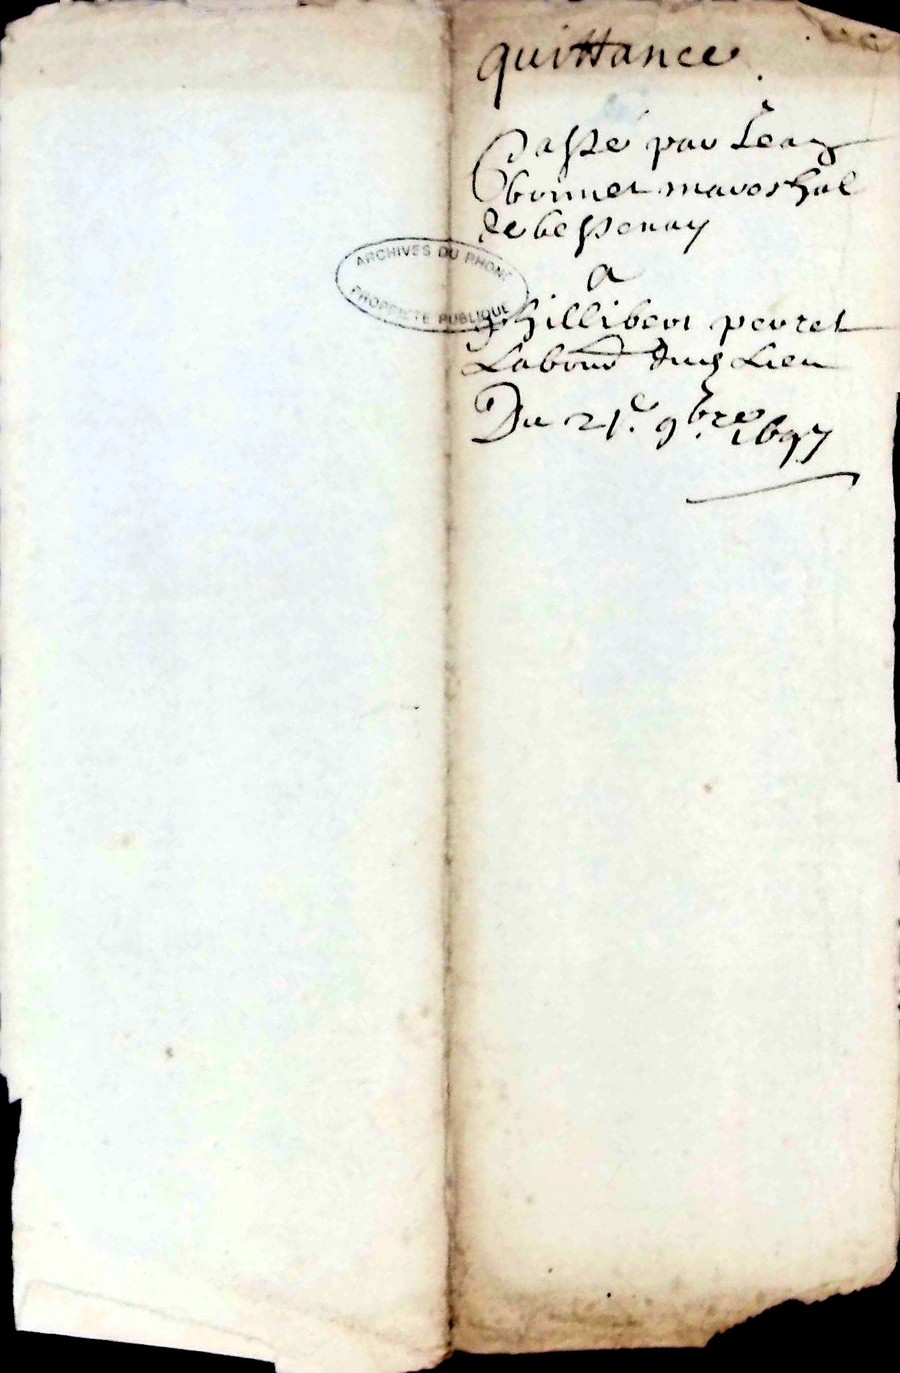 quittance.
Passé par Lean
bonnet mareshal
de bessenay
a
phillibert perret
Labour dud Lieu
Du 21e. 9bre. 1697
ARCHIVES DU RHONE
PROPRIETE PUBLIQUE